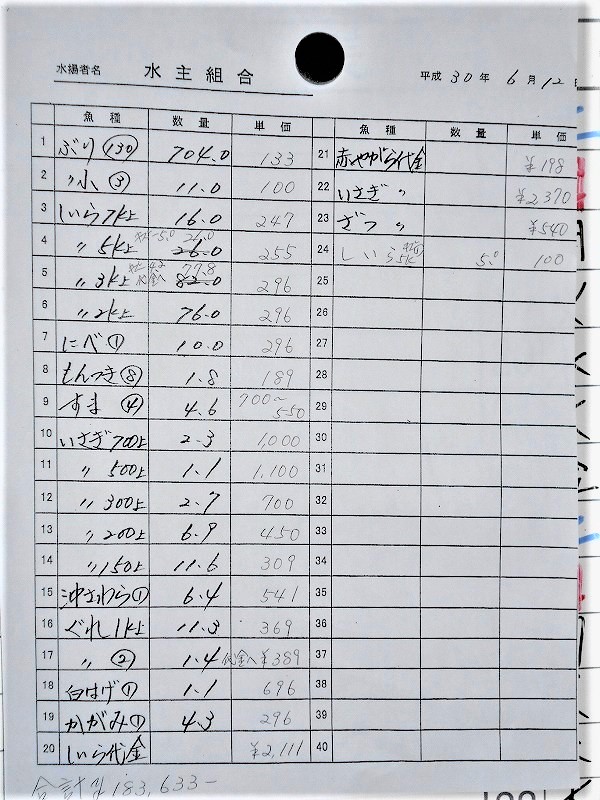 水揚者名 水主組合 平成 30 年 6 月 12
魚種 数量 単価 魚種 数量 単価
1 ぶり (130) 704.0 133
2 〃小 ③ 11.0 100
3 しいら7k上 16.0 247
4 〃 5k上 26.0 26.0 255
5 〃 3k上 77.8 82.0 296
6 〃 2k上 76.0 296
7 にべ ① 10.0 296
8 もんつき ⑧ 1.8 189
9 すま ④ 4.6 700〜550
10 いさぎ 700上 2.3 1,000
11 〃 500上 1.1 1,100
12 〃 300上 2.7 700
13 〃 200上 6.9 450
14 〃 150上 11.6 309
15 沖さわら ① 6.4 541
16 ぐれ 1k上 11.3 369
17 〃 ② 1.4 代金へ ¥389
18 白はげ ① 1.1 696
19 かがみ ① 4.3 296
20 しいら代金 ¥2,111
21 赤やがら代金 ¥198
22 いさぎ 〃 ¥2,370
23 ざつ 〃 ¥540
24 しいら 5k 5.0 100
25
26
27
28
29
30
31
32
33
34
35
36
37
38
39
40
合計 183,633-